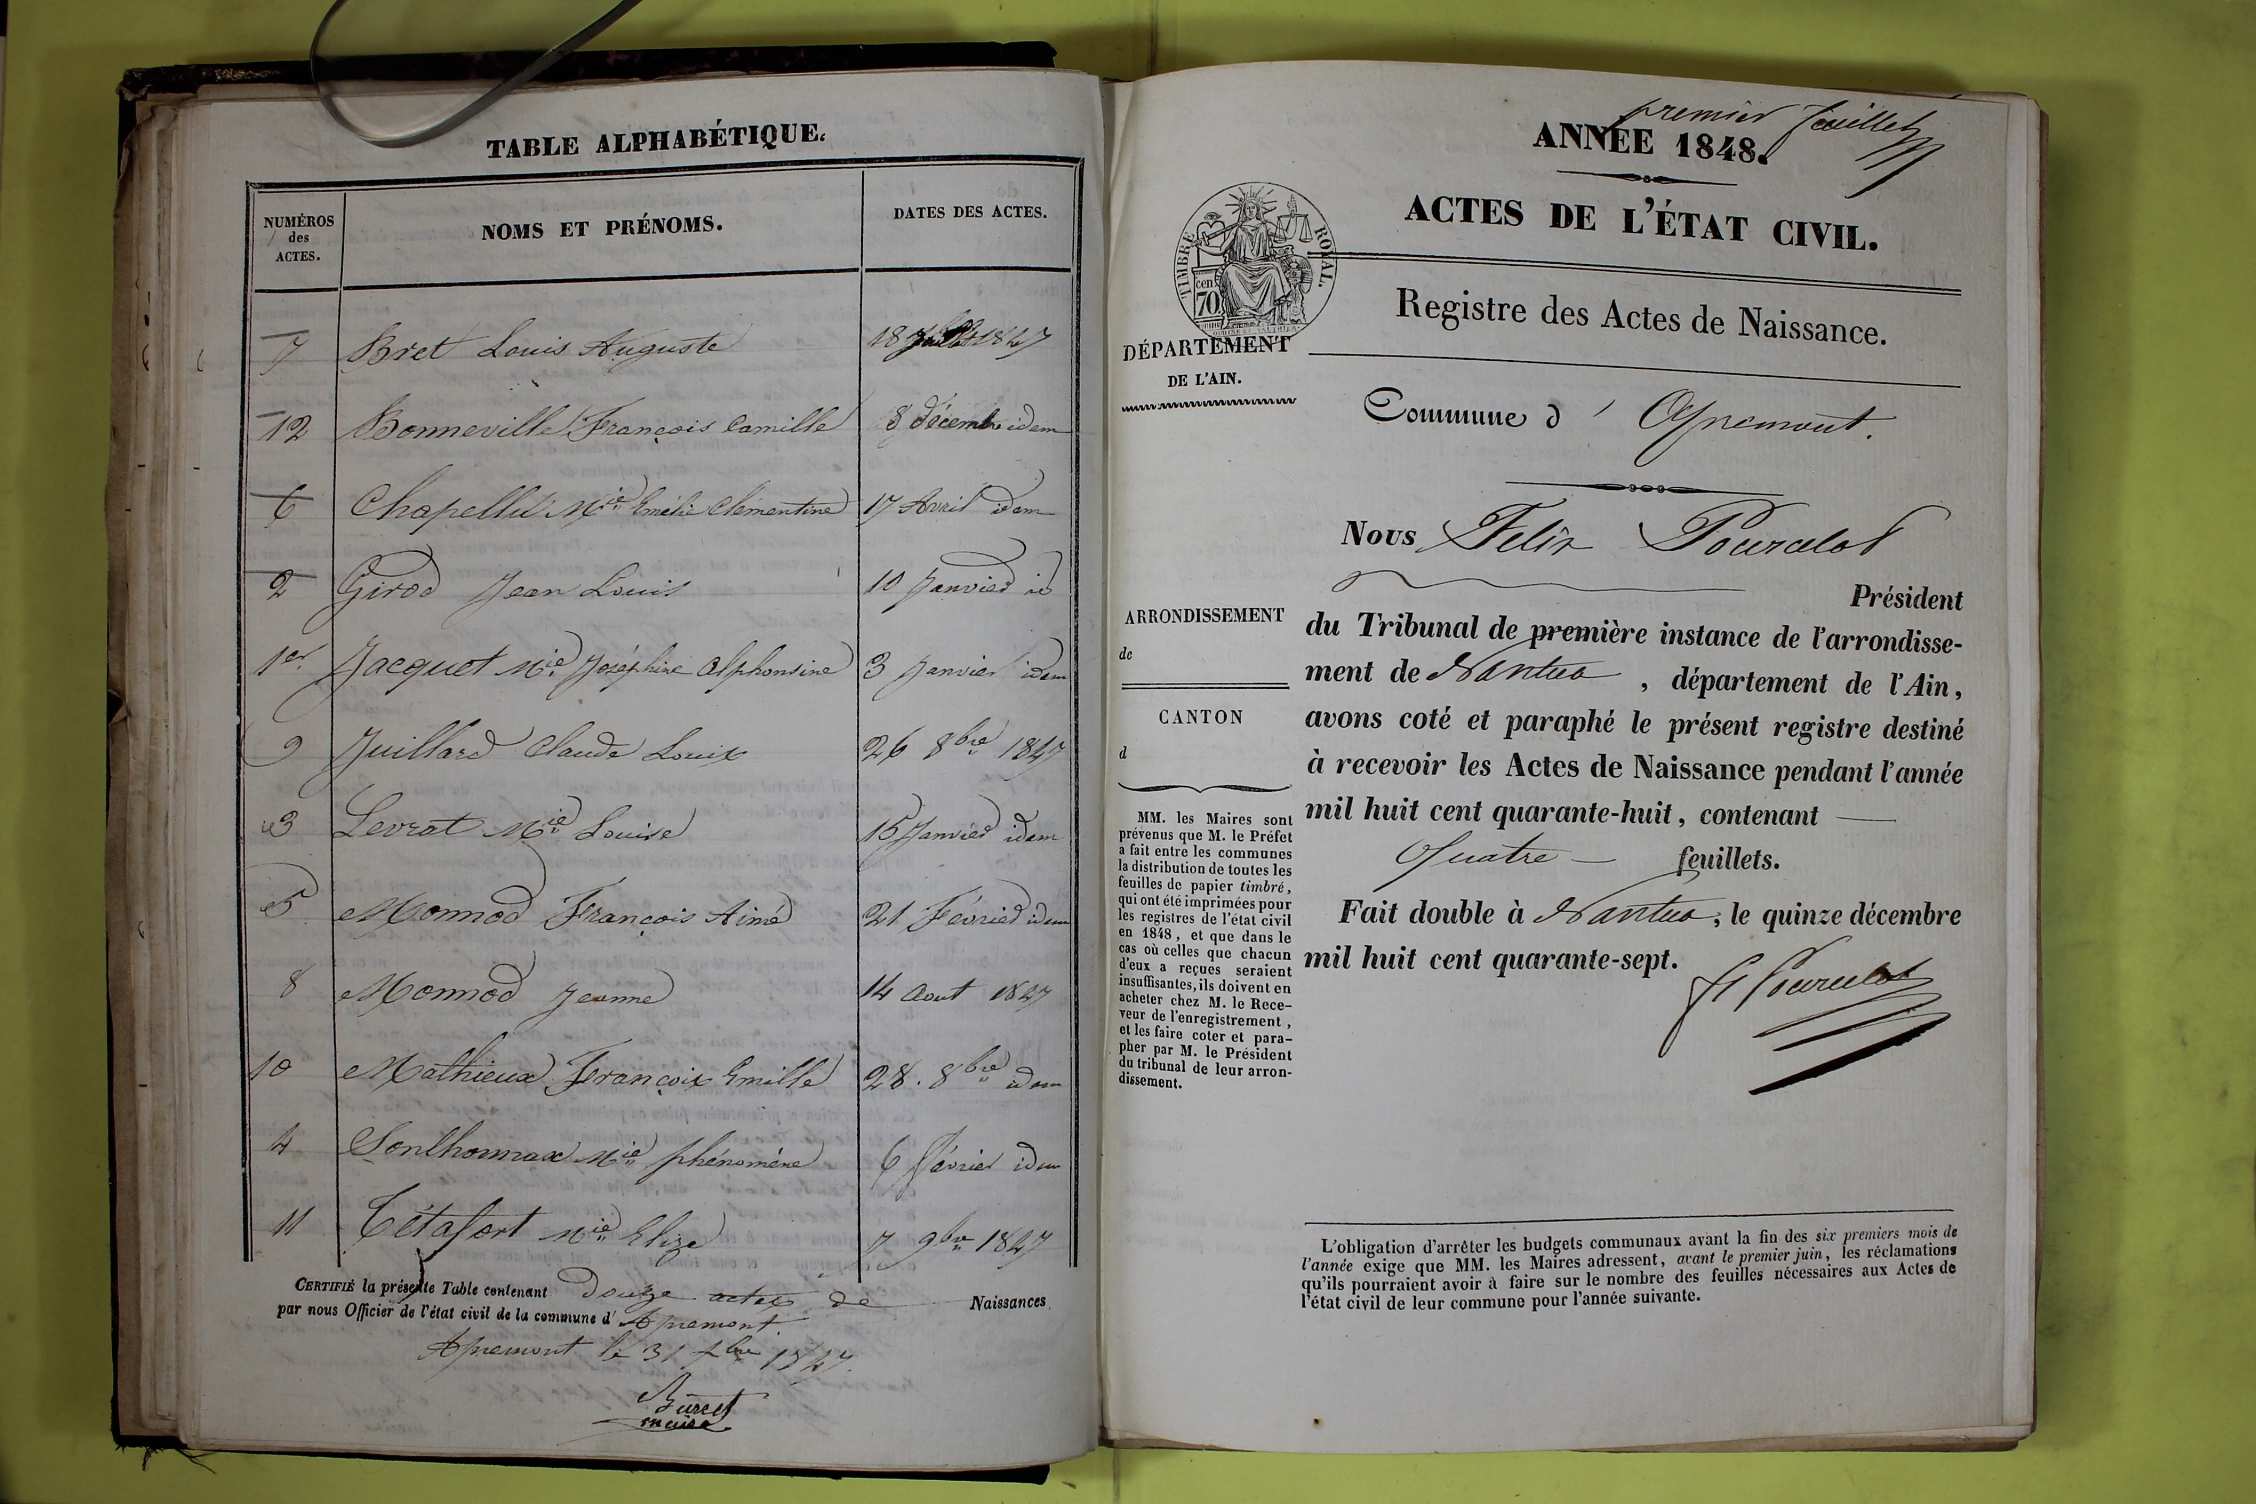 TABLE ALPHABÉTIQUE.
NUMÉROS des ACTES. NOMS ET PRÉNOMS. DATES DES ACTES.
7 Bret Louis Auguste 18 1847
12 Bonneville François Camille 8 décembre idem
6 Chapellu Mie Emélie Clémentine 17 Avril idem
2 Girod Jean Louis 10 Janvier id
1er Jacquet Mie Joséphine Alphonsine 3 Janvier idem
9 Juillard Claude Louis 26 8bre 1847
3 Levrat Mie Louise 15 Janvier idem
5 Monnod François Aimé 21 Février idem
8 Monnod Jeanne 14 Aout 1847
10 Mathieux François Emille 28. 8bre idem
4 Sonthonnax Mie phénomène 6 février idem
11 Tétafort Mie Elize 7 9bre 1847
CERTIFIÉ la présente Table contenant Douze actes de Naissances
par nous Officier de l'état civil de la commune d' Apremont.
Apremont le 31 xbre 1847.
Burcet
maire
premier feuillet
ANNÉE 1848.
ACTES DE L'ÉTAT CIVIL.
TIMBRE ROYAL.
cen. 70
Registre des Actes de Naissance.
DÉPARTEMENT
DE L'AIN.
Commune d' Apremont.
Nous Felix Pourcelot
Président
ARRONDISSEMENT
de
CANTON
d
du Tribunal de première instance de l'arrondisse-
ment de Nantua, département de l'Ain,
avons coté et paraphé le présent registre destiné
à recevoir les Actes de Naissance pendant l'année
mil huit cent quarante-huit, contenant —
Quatre — feuillets.
Fait double à Nantua, le quinze décembre
mil huit cent quarante-sept.
F Pourcelot
MM. les Maires sont
prévenus que M. le Préfet
a fait entre les communes
la distribution de toutes les
feuilles de papier timbré,
qui ont été imprimées pour
les registres de l'état civil
en 1848, et que dans le
cas où celles que chacun
d'eux a reçues seraient
insuffisantes, ils doivent en
acheter chez M. le Rece-
veur de l'enregistrement,
et les faire coter et para-
pher par M. le Président
du tribunal de leur arron-
dissement.
L'obligation d'arrêter les budgets communaux avant la fin des six premiers mois de
l'année exige que MM. les Maires adressent, avant le premier juin, les réclamations
qu'ils pourraient avoir à faire sur le nombre des feuilles nécessaires aux Actes de
l'état civil de leur commune pour l'année suivante.